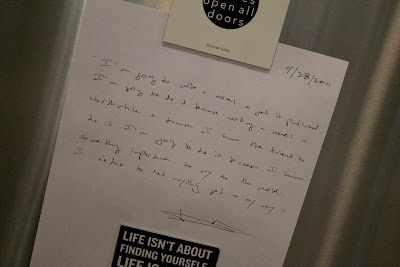 open all
doors
Thomas Fuller
9/28/2011
"I'm going to write a novel & get it published.
I'm going to do it because writing a novel is
worthwhile & because I have the talent to
do it. I'm going to do it because I have
something important to say to the world.
I refuse to let anything get in my way."
LIFE ISN'T ABOUT
FINDING YOURSELF
LIFE IS